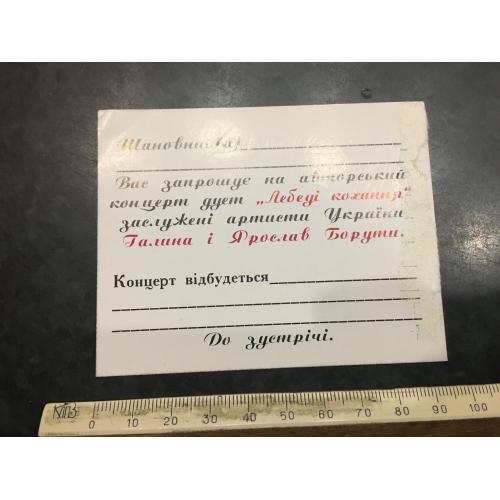 Шановний(а)
Вас запрошує на авторський
концерт дует „Лебеді кохання"
заслужені артисти України
Галина і Ярослав Борути.
Концерт відбудеться
До зустрічі.
КПЗ 0 10 20 30 40 50 60 70 80 90 100